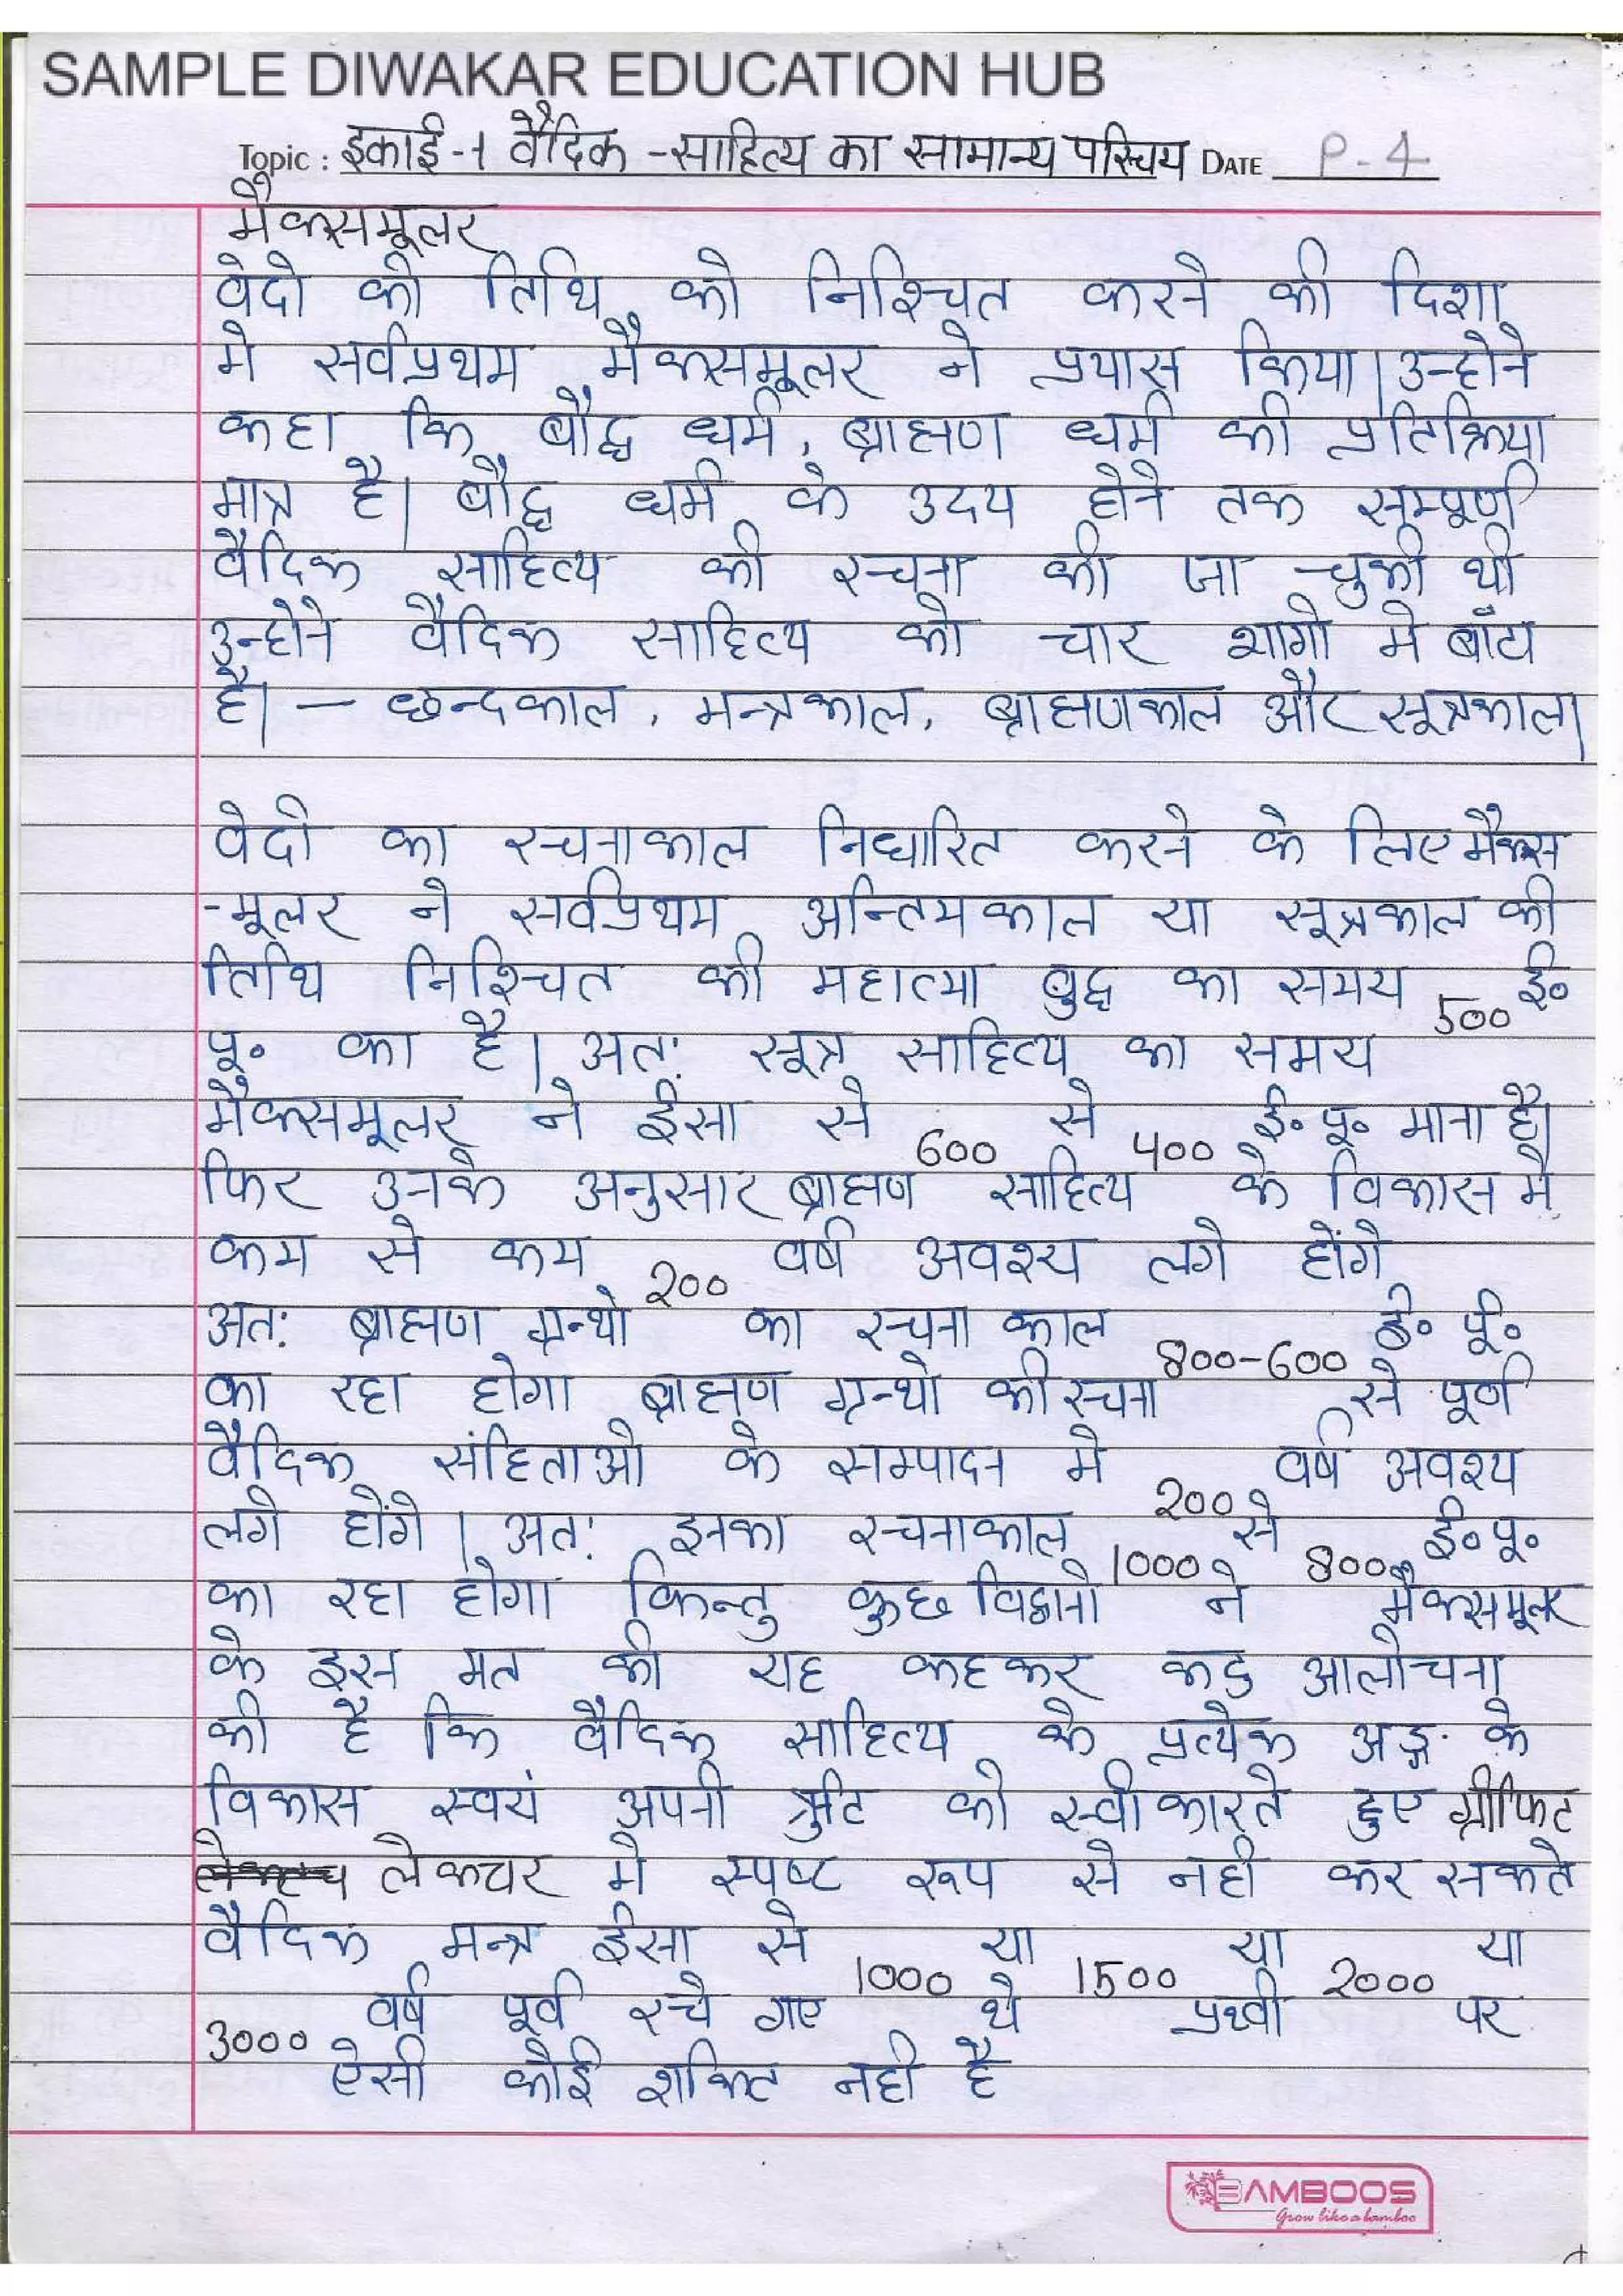 SAMPLE DIWAKAR EDUCATION HUB
Topic : इकाई-1 वैदिक -साहित्य का सामान्य परिचय DATE P-4
मैक्समूलर
वेदो की तिथि को निश्चित करने की दिशा
मे सर्वप्रथम मैक्समूलर ने प्रयास किया। उन्होने
कहा कि बौद्ध धर्म, ब्राह्मण धर्म की प्रतिक्रिया
मात्र है। बौद्ध धर्म के उदय होने तक सम्पूर्ण
वैदिक साहित्य की रचना की जा चुकी थी
उन्होने वैदिक साहित्य को चार भागो मे बाँटा
है। – छन्दकाल, मन्त्रकाल, ब्राह्मणकाल और सूत्रकाल।
वेदो का रचनाकाल निर्धारित करने के लिए मैक्स
-मूलर ने सर्वप्रथम अन्तिमकाल या सूत्रकाल की
तिथि निश्चित की महात्मा बुद्ध का समय 500 ई०
पू० का है। अत: सूत्र साहित्य का समय
मैक्समूलर ने ईसा से 600 से 400 ई० पू० माना है।
फिर उनके अनुसार ब्राह्मण साहित्य के विकास मे
कम से कम 200 वर्ष अवश्य लगे होंगे
अत: ब्राह्मण ग्रन्थो का रचना काल 800-600 ई० पू०
का रहा होगा ब्राह्मण ग्रन्थो की रचना से पूर्ण
वैदिक संहिताओ के सम्पादन मे 200 वर्ष अवश्य
लगे होंगे। अत: इनका रचनाकाल 1000 से 800 ई० पू०
का रहा होगा किन्तु कुछ विद्वानो ने मैक्समूलर
के इस मत की यह कहकर कटु आलोचना
की है कि वैदिक साहित्य के प्रत्येक अङ्ग के
विकास स्वयं अपनी त्रुटि को स्वीकारते हुए ग्रीफिट
लेकचर मे स्पष्ट रूप से नही कर सकते
वैदिक मन्त्र ईसा से 1000 या 1500 या 2000 या
3000 वर्ष पूर्व रचे गए थे प्रथ्वी पर
ऐसी कोई शक्ति नही है
BAMBOOS
Grow like a bamboo